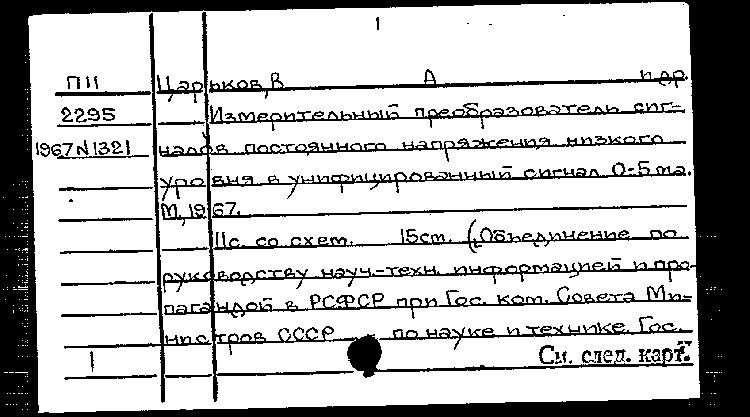 1
П11 Царьков, В А и др.
2295 Измерительный преобразователь сиг=
1967N1321 налов постоянного напряжения низкого
уровня в унифицированный сигнал 0-5 ma.
М, 1967.
11с. со схем. 15см. (Объединение по
руководству науч.-техн. информацией и про-
пагандой в РСФСР при Гос. ком. Совета Ми=
нистров СССР по науке и технике. Гос.
1 См. след. карт.